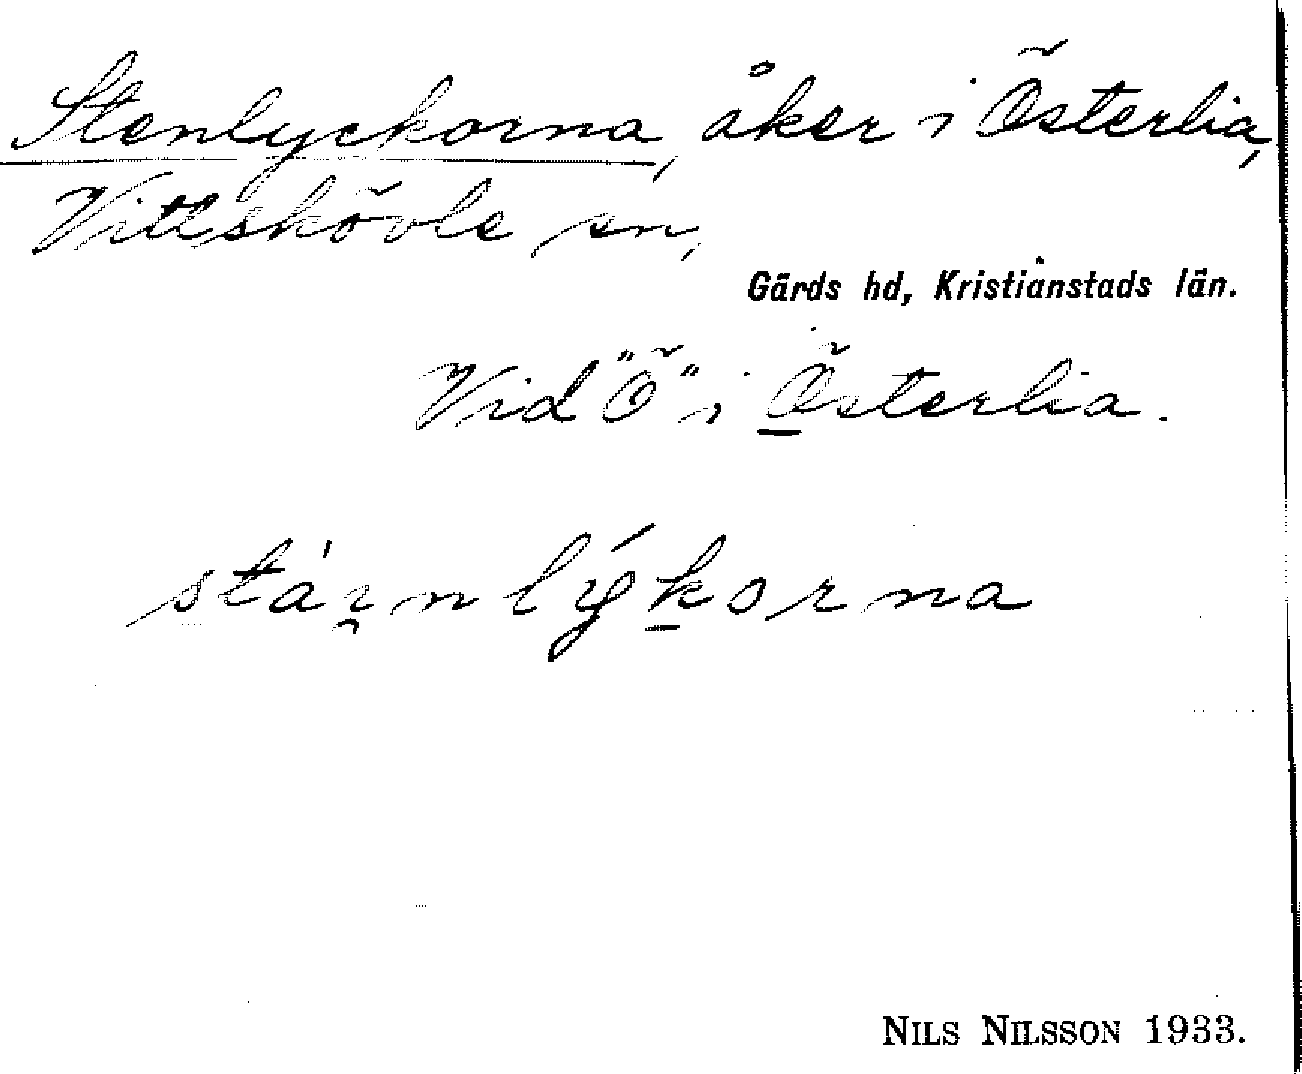 Stenlyckorna, åker i Österlia,
Vittskövle sn,
Gärds hd, Kristianstads län.
Vid "Ö" i Österlia.
stáɪ̯nlýkorna
NILS NILSSON 1933.